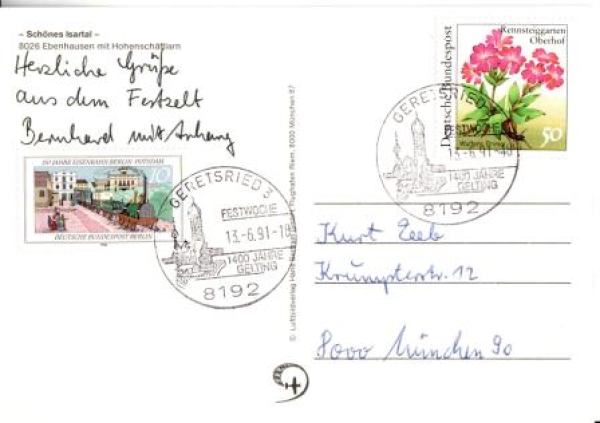 – Schönes Isartal –
8026 Ebenhausen mit Hohenschäftlarn
Herzliche Grüße
aus dem Festzelt
Bernhard mit Anhang
150 JAHRE EISENBAHN BERLIN-POTSDAM
10
DEUTSCHE BUNDESPOST BERLIN
GERETSRIED 3
FESTWOCHE
13.-6.91-18
1400 JAHRE
GELTING
8192
© Luftbildverlag Hans Flughafen Riem, 8000 München 87
Rennsteiggarten
Oberhof
Deutsche Bundespost
50
GERETSRIED 3
FESTWOCHE
13.-6.91
1400 JAHRE
GELTING
8192
Kurt
Krumpterstr. 12
8000 München 90